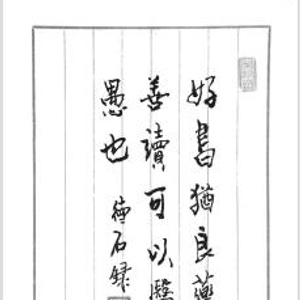 好書猶良藥
善讀可以醫
愚也
德石錄